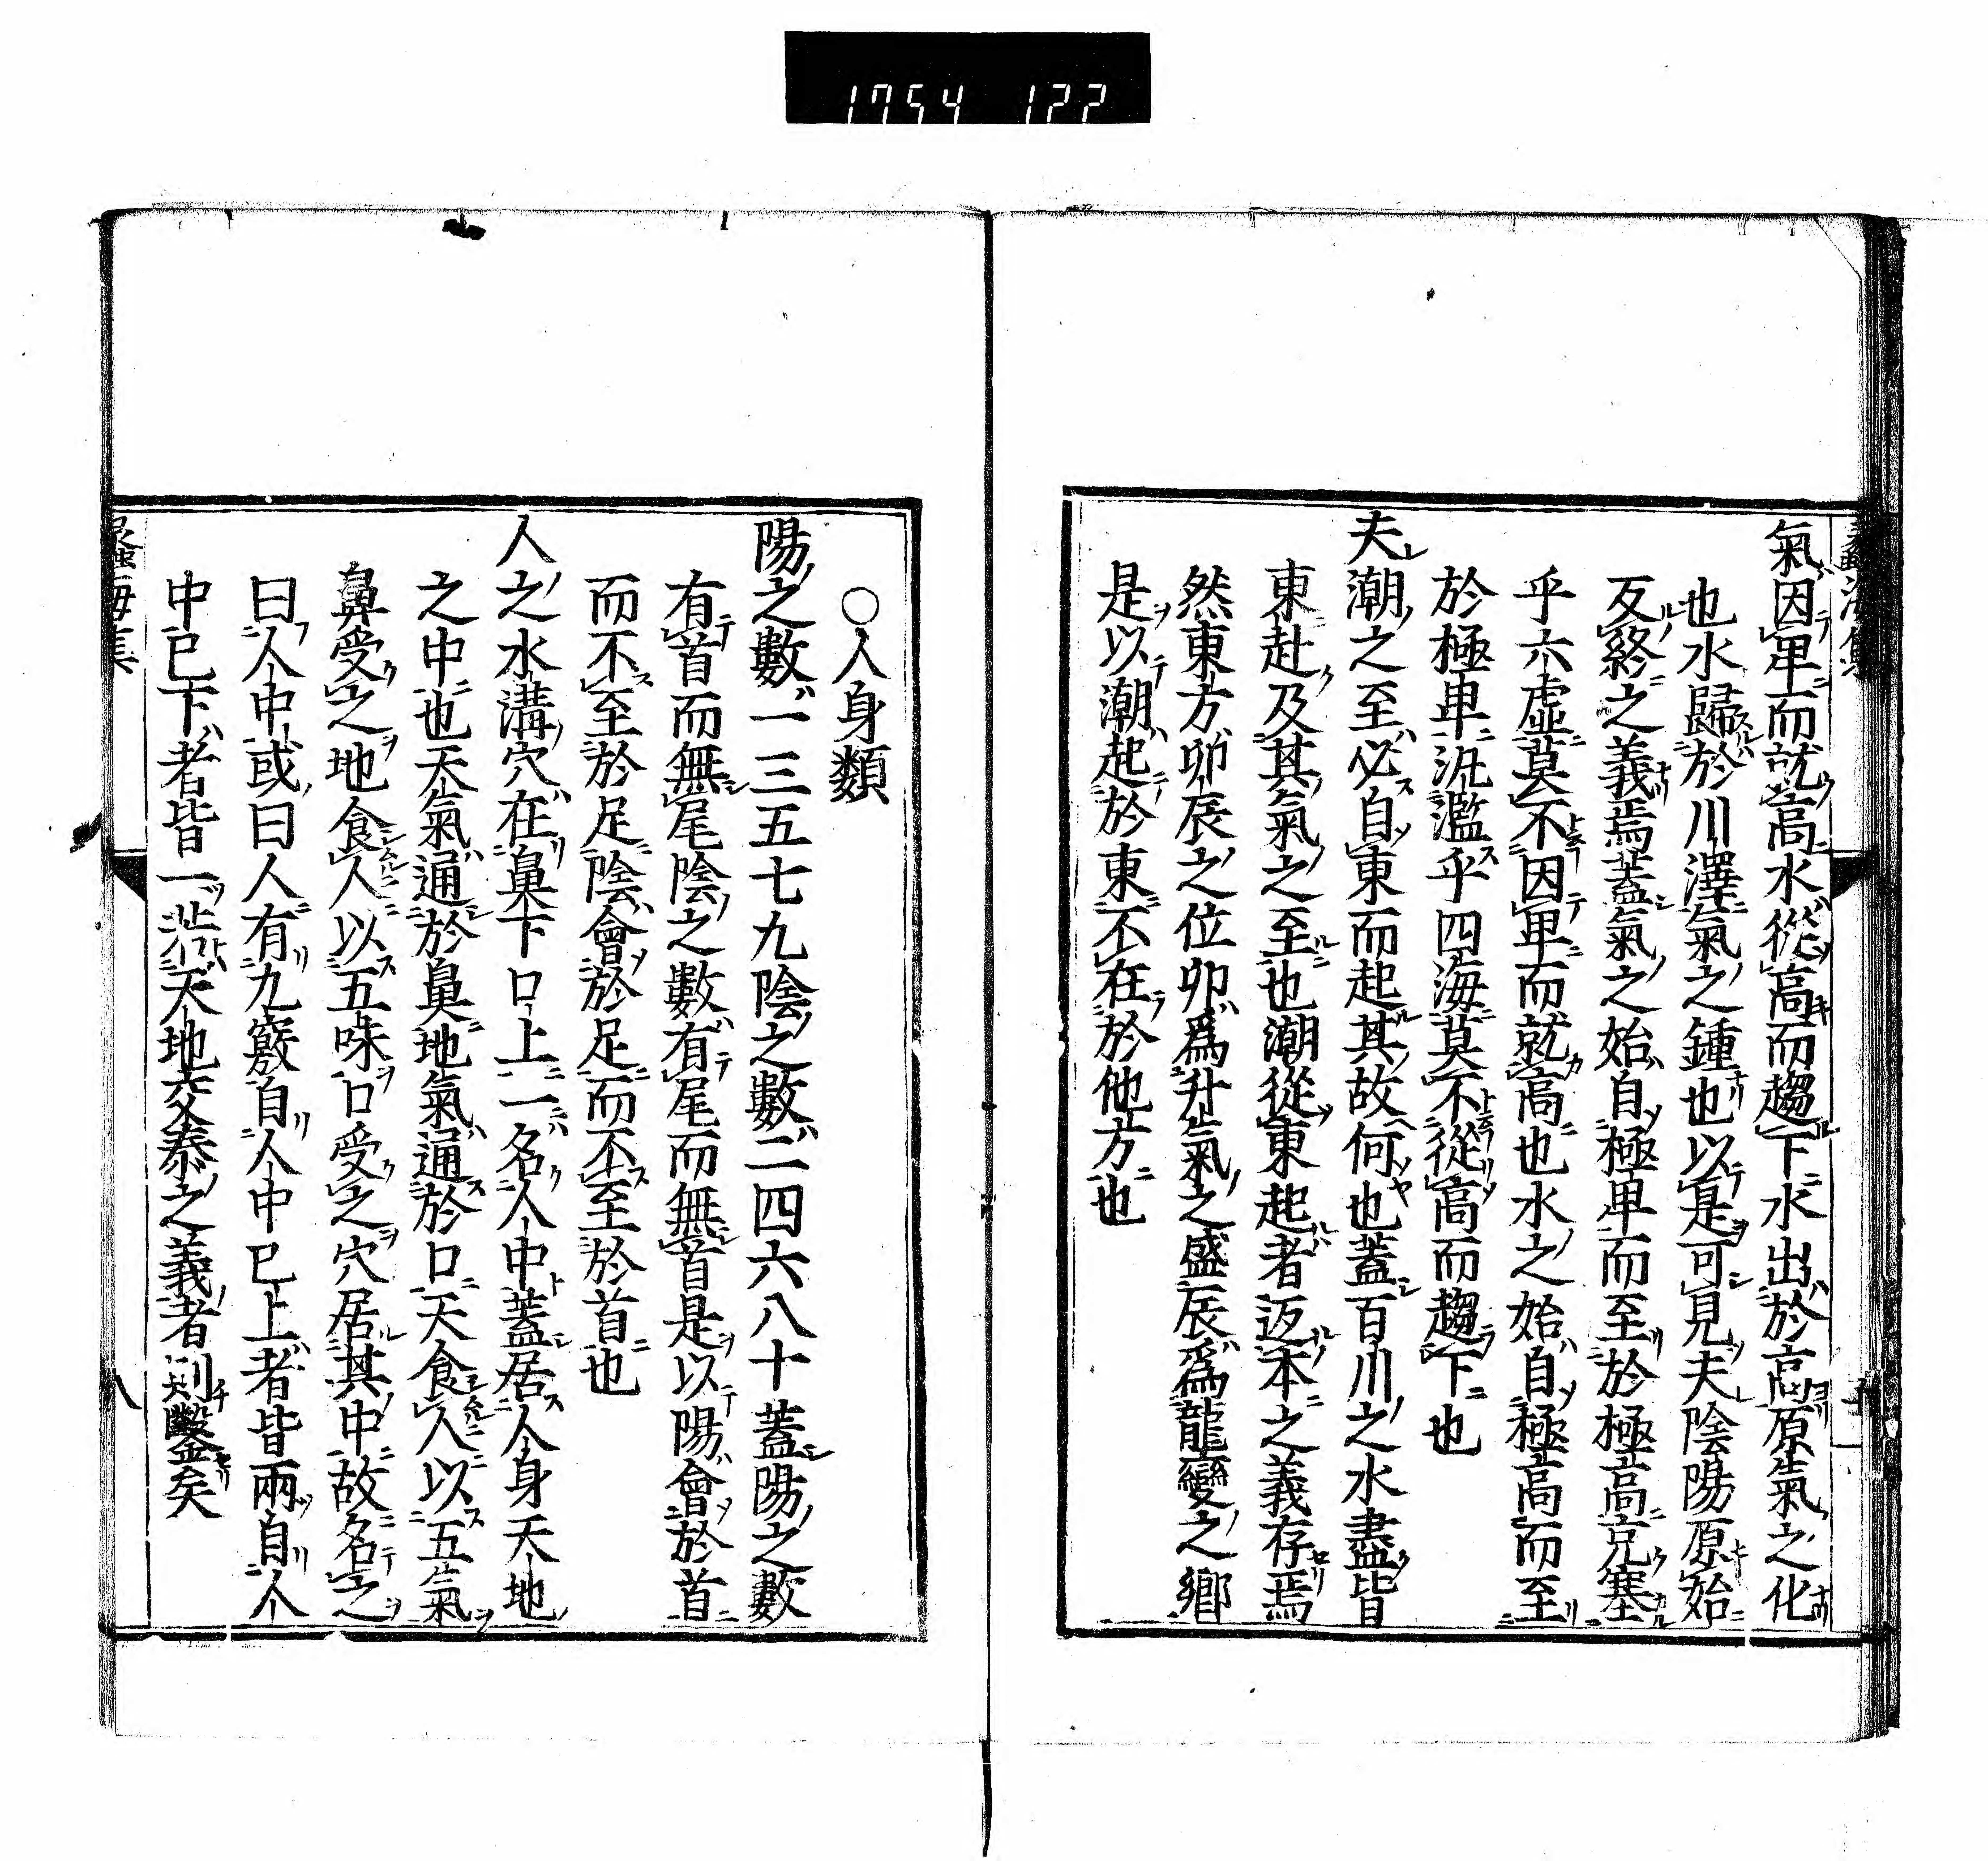 1754 122
氣因卑而就高水從高而趨下水出於高原氣之化
也水歸於川澤氣之鍾也以是可見夫陰陽原始
反終之義焉蓋氣之始自極卑而至於極高充塞
乎六虛莫不因卑而就高也水之始自極高而至
於極卑汎濫乎四海莫不從高而趨下也
夫潮之至必自東而起其故何也蓋百川之水盡皆
東赴及其氣之至也潮從東起者返本之義存焉
然東方卯辰之位卯爲升氣之盛辰爲龍變之鄉
是以潮起於東不在於他方也
○人身類
陽之數一三五七九陰之數二四六八十蓋陽之數
有首而無尾陰之數有尾而無首是以陽會於首
而不至於足陰會於足而不至於首也
人之水溝穴在鼻下口上一名人中蓋居人身天地
之中也天氣通於鼻地氣通於口天食人以五氣
鼻受之地食人以五味口受之穴居其中故名之
曰人中或曰人有九竅自人中已上者皆兩自人
中已下者皆一若天地交泰之義者則鑿矣
八
海集